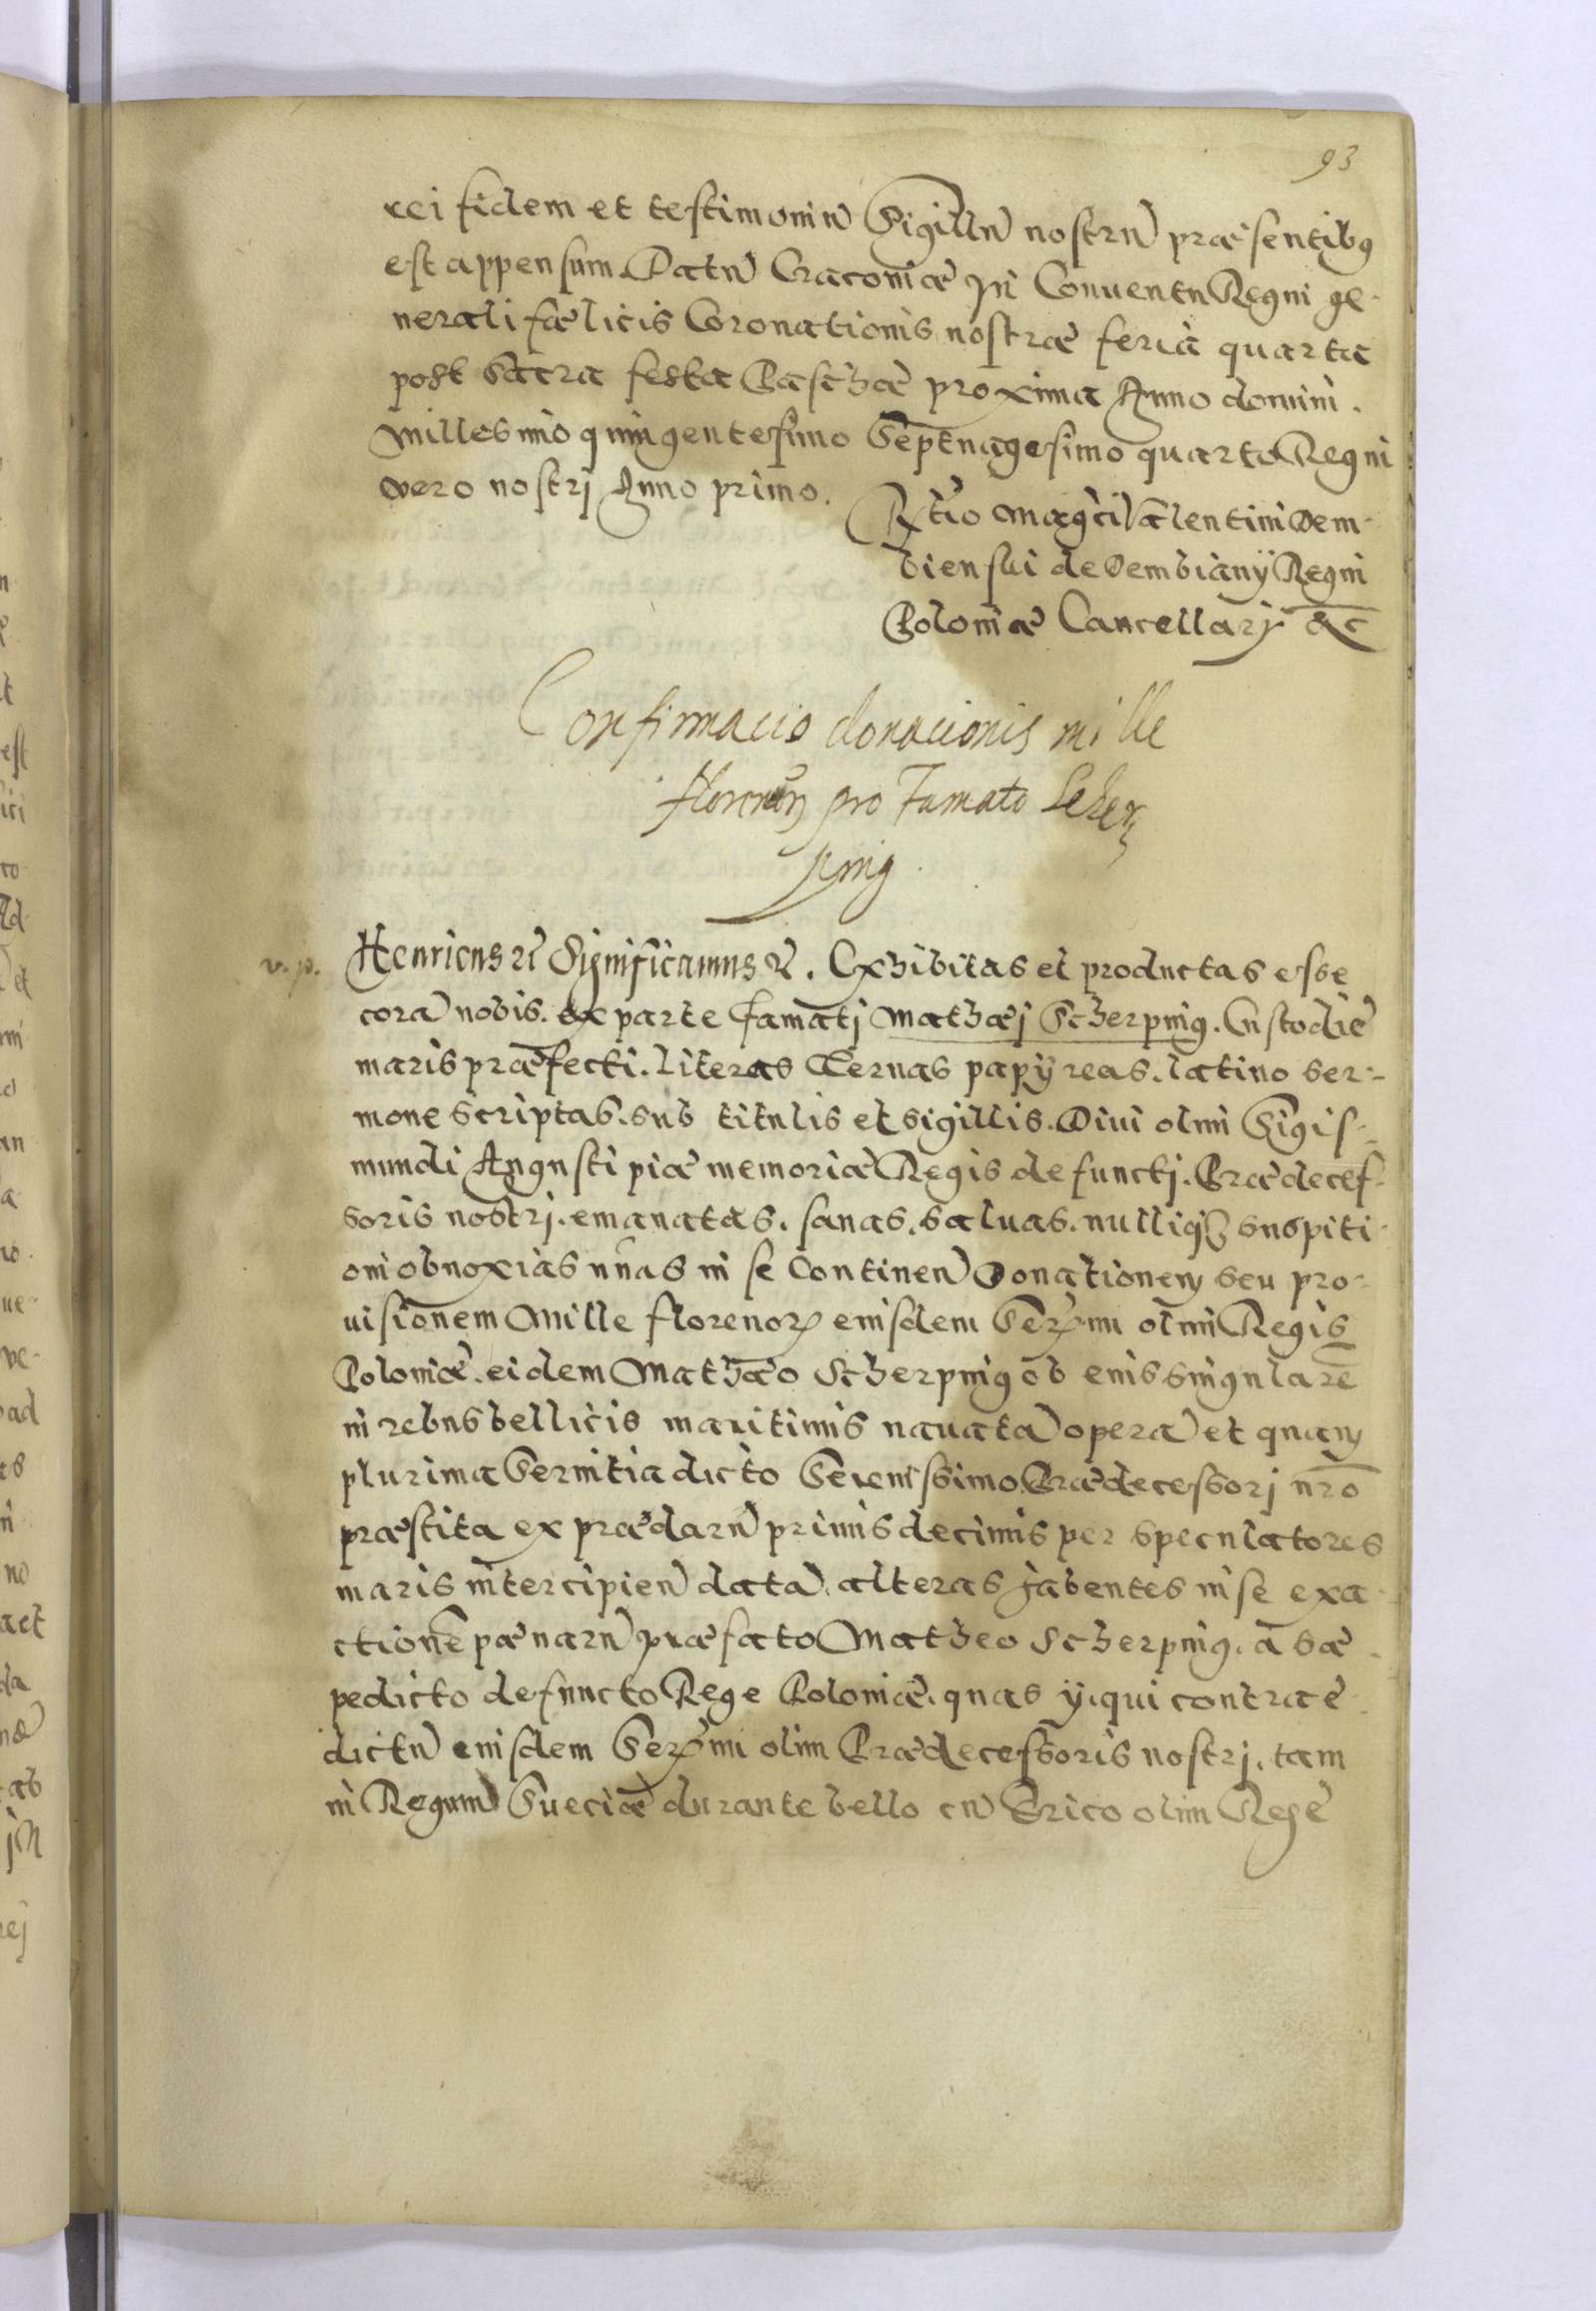 93
rei fidem et testimoniũ Sigillũ nostrũ præsentibus
est appensum. Datũ Cracoviæ In Conventu Regni ge-
nerali fœlicis Coronationis nostræ feria quarta
post Sacra festa Paschæ proxima Anno domini.
Millesimo quingentesimo Septuagesimo quarto Regni
vero nostrj Anno primo.
Rtio Magci Valentini Dem-
bienski de Dembiany Regni
Poloniæ Cancellarij &c
Confirmacio donacionis mille
florenorũ pro Famato Scher
ping
v. p.
Henricus etc Significamus etc. Exhibitas et productas esse
corã nobis. ex parte famatj Mathæj Scherping. Custodiæ
maris præfecti. literas Ternas papyreas. latino ser-
mone scriptas. sub titulis et sigillis. Divi olim Sigis-
mundi Augusti piæ memoriæ Regis defunctj. Prædeces-
soris nostrj. emanatas. sanas. saluas. nulliq3 suspiti-
oni obnoxias unas in se Continen Donationem seu pro-
uisionem Mille florenorum eiusdem Sermi olim Regis
Poloniæ. eidem Mathæo Scherping ob eius singularẽ
in rebus bellicis maritimis nauatã operã et quam
plurima Seruitia dicto Serenissimo Prædecessorj nrõ
præstita ex prædarũ primis decimis per speculatores
maris intercipien datã. alteras habentes in se exa-
ctionẽ pænarũ præfato Matheo Scherping. a sæ-
pedicto defuncto Rege Poloniæ. quas ij. qui contra e-
dictũ eiusdem Sermi olim Prædecessoris nostrj. tam
in Regnum Sueciæ durante bello cũ Erico olim Rege